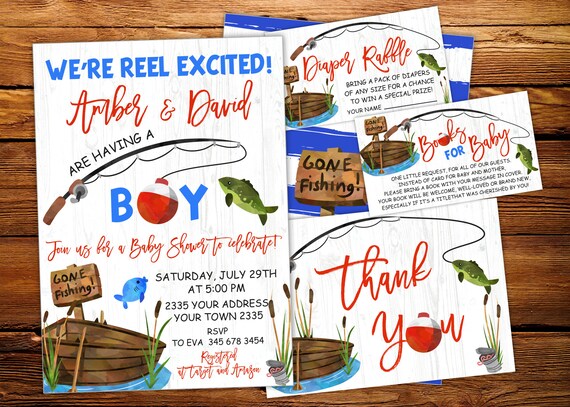 WE'RE REEL EXCITED!
Amber & David
ARE HAVING A
BOY
Join us for a Baby Shower to celebrate!
GONE
Fishing!
SATURDAY, JULY 29TH
AT 5:00 PM
2335 YOUR ADDRESS
YOUR TOWN 2335
RSVP
TO EVA 345 678 3454
Registered
at Target and Amazon
Diaper Raffle
BRING A PACK OF DIAPERS
OF ANY SIZE FOR A CHANCE
TO WIN A SPECIAL PRIZE!
YOUR NAME
GONE
Fishing!
Books
FOR Baby
ONE LITTLE REQUEST, FOR ALL OF OUR GUESTS.
INSTEAD OF CARD FOR BABY AND MOTHER.
PLEASE BRING A BOOK WITH YOUR MESSAGE IN COVER
YOUR BOOK WILL BE WELCOME, WELL-LOVED OR BRAND NEW.
ESPECIALLY IF IT'S A TITLETHAT WAS CHERISHED BY YOU!
GONE
Fishing!
GONE
Fishing!
Thank
You